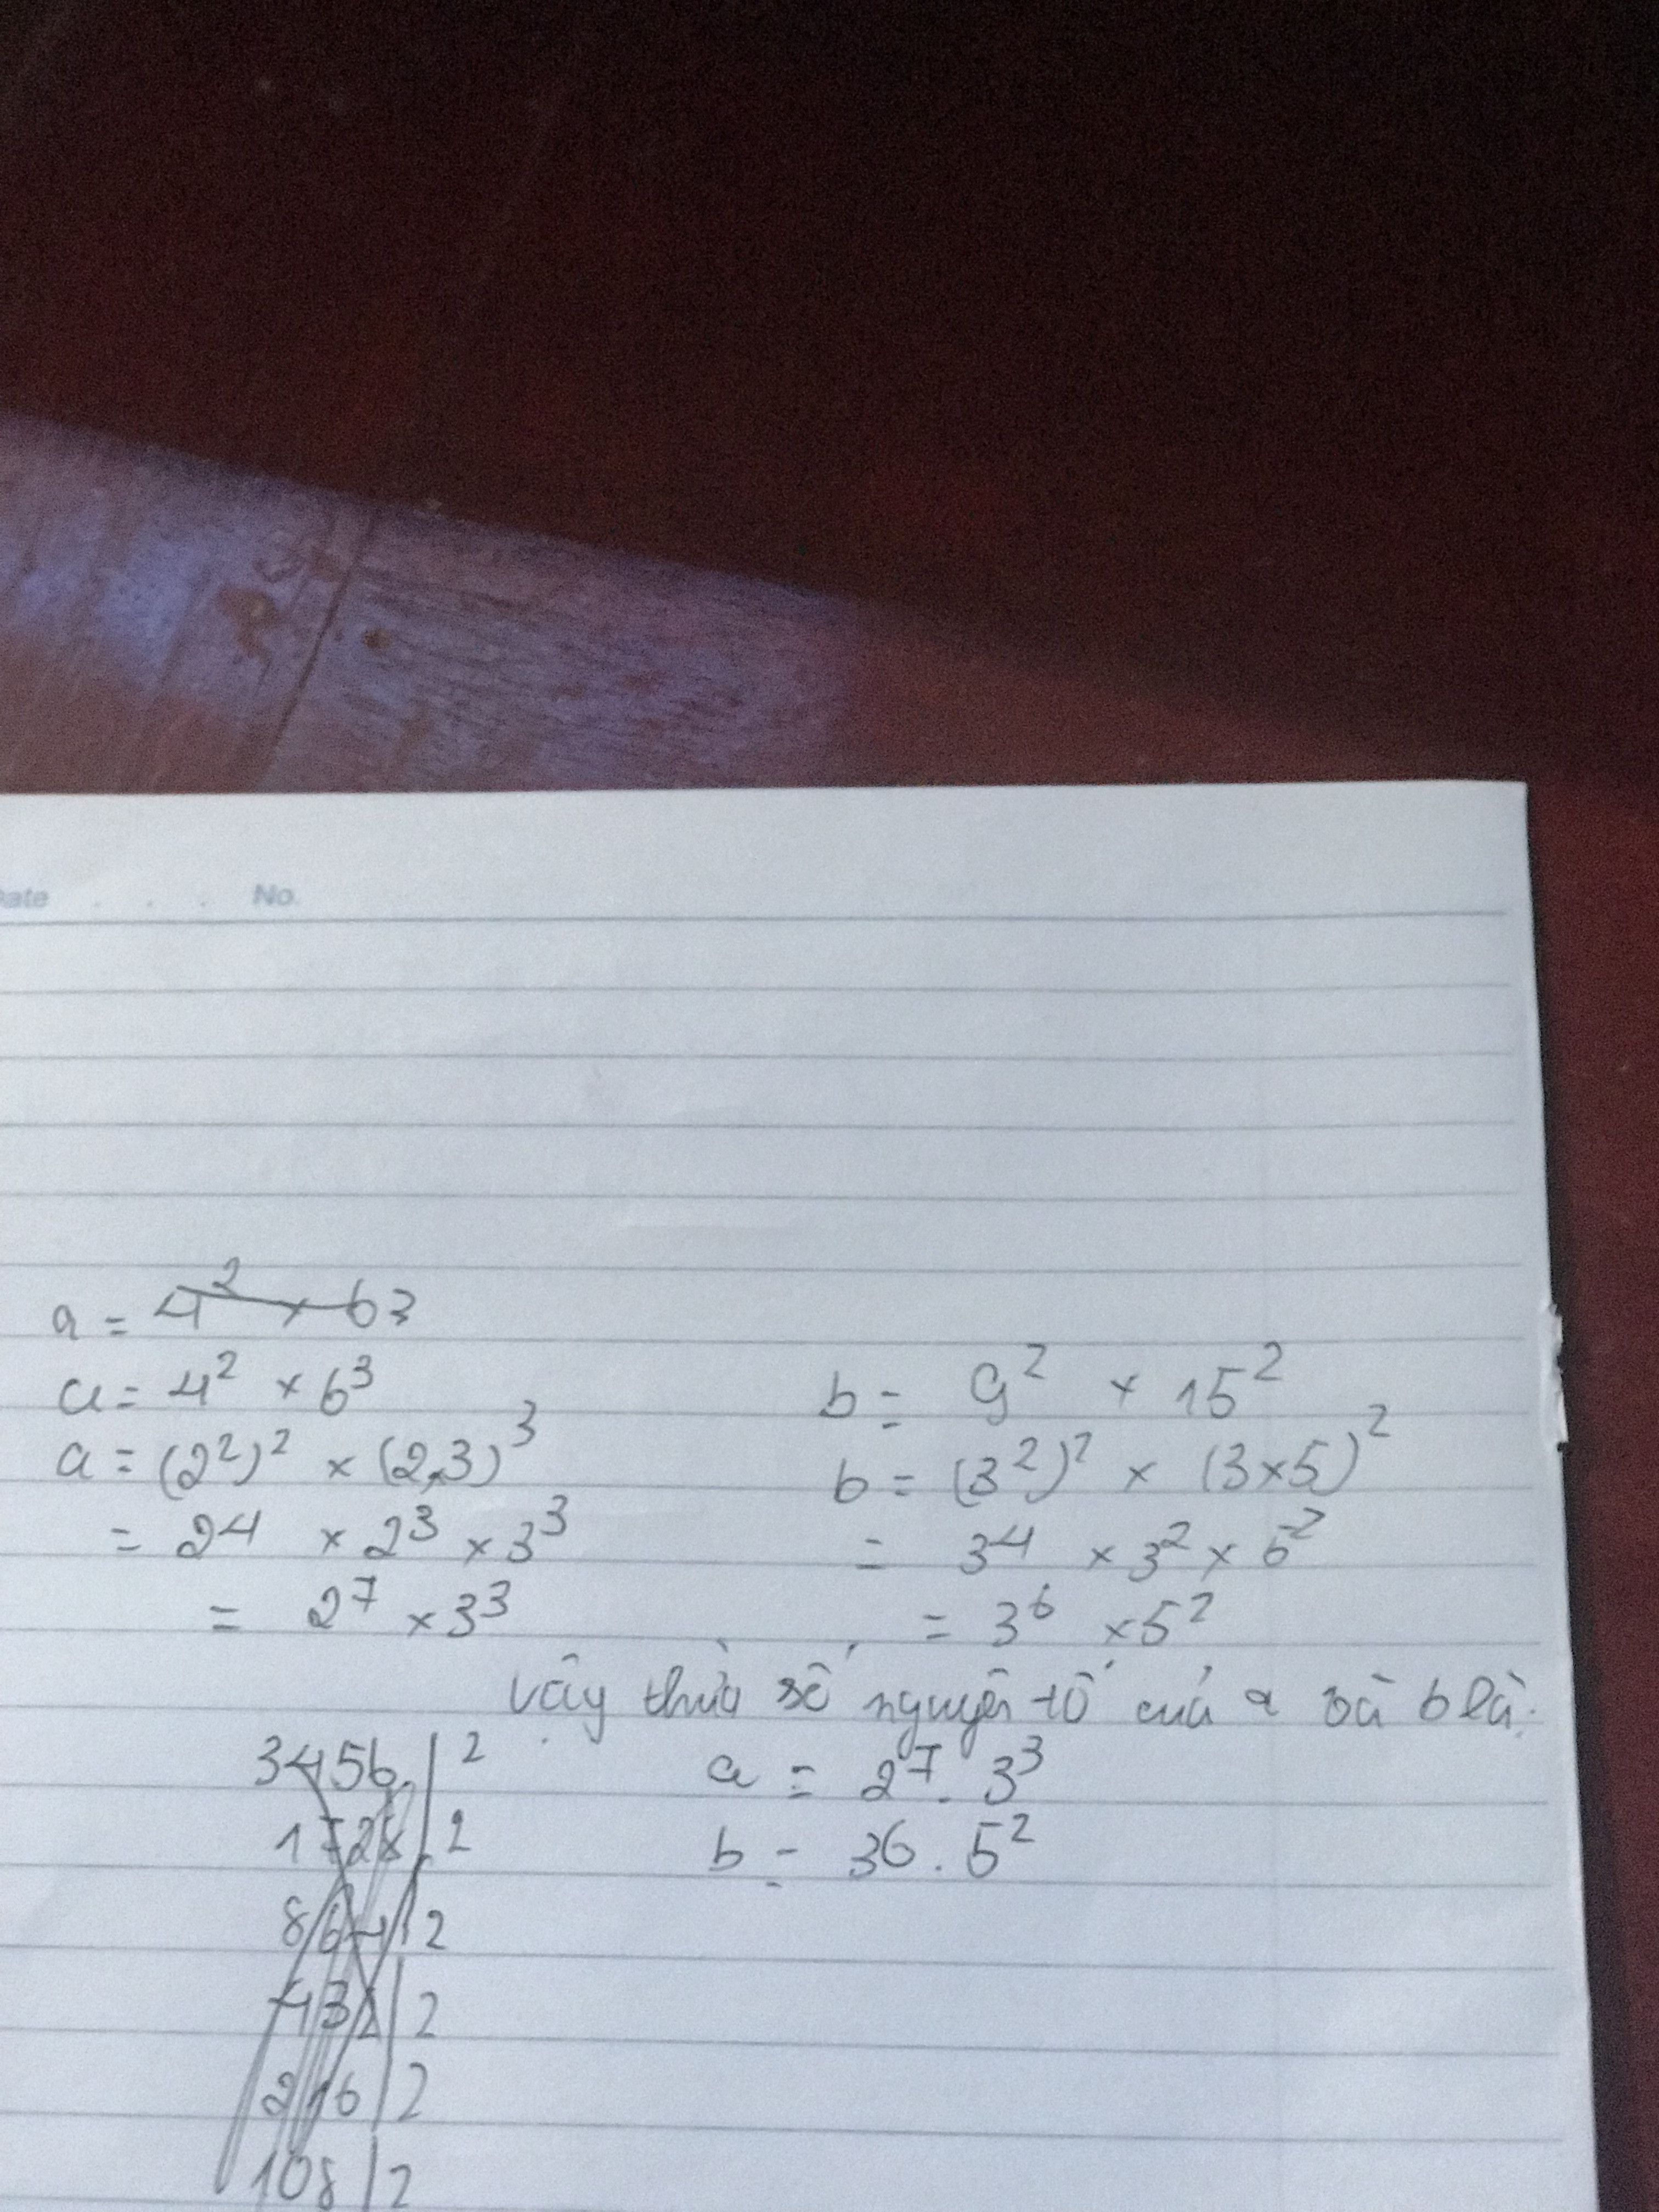 Date . . . No.
a = 4² × 63
a = 4² × 6³
a = (2²)² × (2×3)³
= 2⁴ × 2³ × 3³
= 2⁷ × 3³
b = 9² × 15²
b = (3²)² × (3×5)²
= 3⁴ × 3² × 5²
= 3⁶ × 5²
Vậy thừa số nguyên tố của a và b là:
a = 2⁷ . 3³
b = 36 . 5²
3456 | 2
1728 | 2
864 | 2
432 | 2
216 | 2
108 | 2